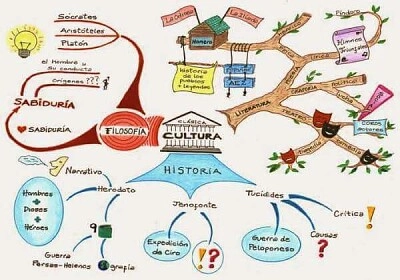 Sócrates
Aristóteles
Platón
el Hombre y
su conducta
Orígenes ???
SABIDURÍA
SABIDURÍA
FILOSOFÍA
CLÁSICA
CULTURA
HISTORIA
La Odisea
La Ilíada
Homero
Historia de
los pueblos
+ leyendas
LITERATURA
TEATRO
Píndaro
Himnos
Triunfales
Lírica
Tragedia
Comedia
COROS
Actores
Narrativo
Hombres
+
Dioses
+
Héroes
Herodoto
Guerra
Persas-Helenos
grafía
Jenofonte
Expedición
de Ciro
!?
Tucídides
Guerra de
Peloponeso
Crítica !
Causas
?